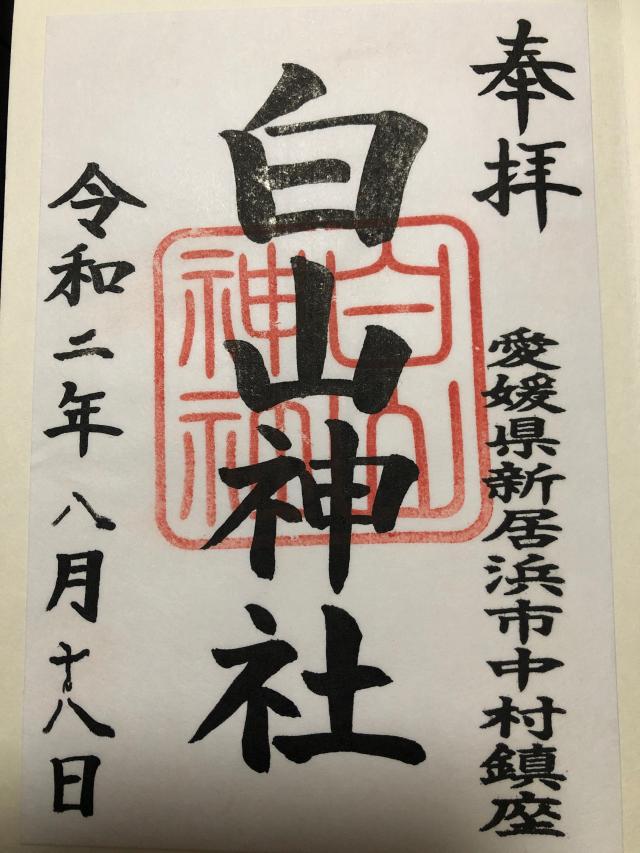 奉拝
愛媛県新居浜市中村鎮座
白山神社
令和二年八月十八日